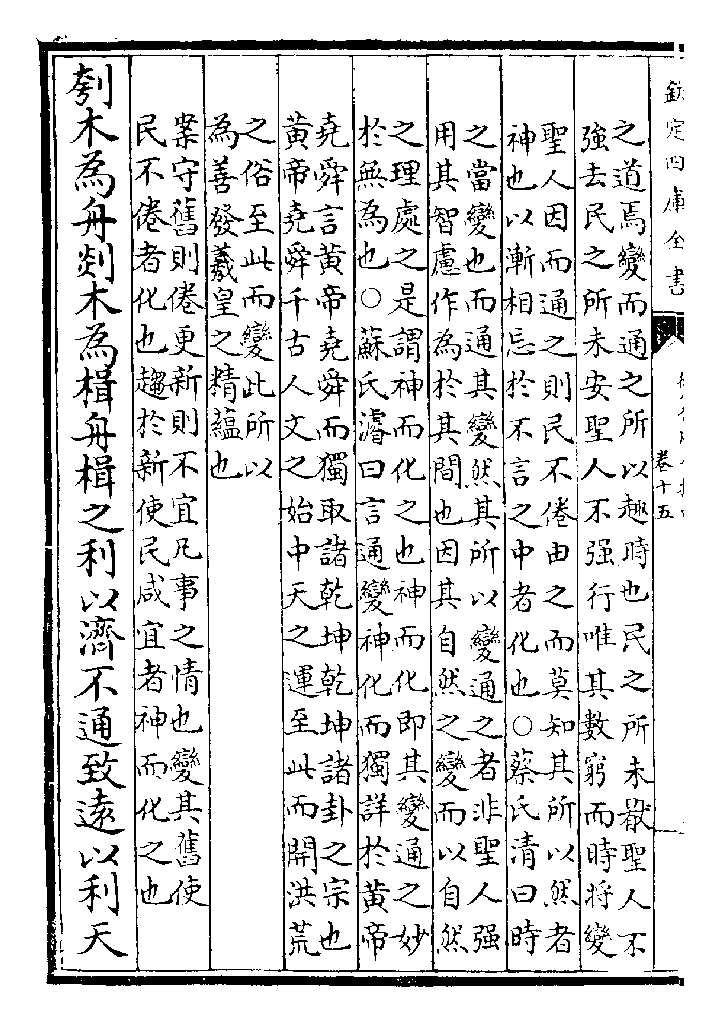 欽定四庫全書
卷十五
之道焉變而通之所以趣時也民之所未厭聖人不
強去民之所未安聖人不强行唯其數窮而時將變
聖人因而通之則民不倦由之而莫知其所以然者
神也以漸相忘於不言之中者化也○蔡氏清曰時
之當變也而通其變然其所以變通之者非聖人强
用其智慮作為於其間也因其自然之變而以自然
之理處之是謂神而化之也神而化即其變通之妙
於無為也○蘇氏濬曰言通變神化而獨詳於黄帝
堯舜言黄帝堯舜而獨取諸乾坤乾坤諸卦之宗也
黄帝堯舜千古人文之始中天之運至此而開洪荒
之俗至此而變此所以
為善發羲皇之精蘊也
業守舊則倦更新則不宜凡事之情也變其舊使
民不倦者化也趨於新使民咸宜者神而化之也
刳木為舟剡木為楫舟楫之利以濟不通致遠以利天